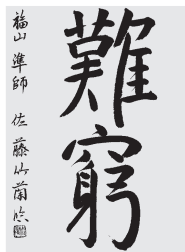 難窮
福山 準師 佐藤竹蘭臨